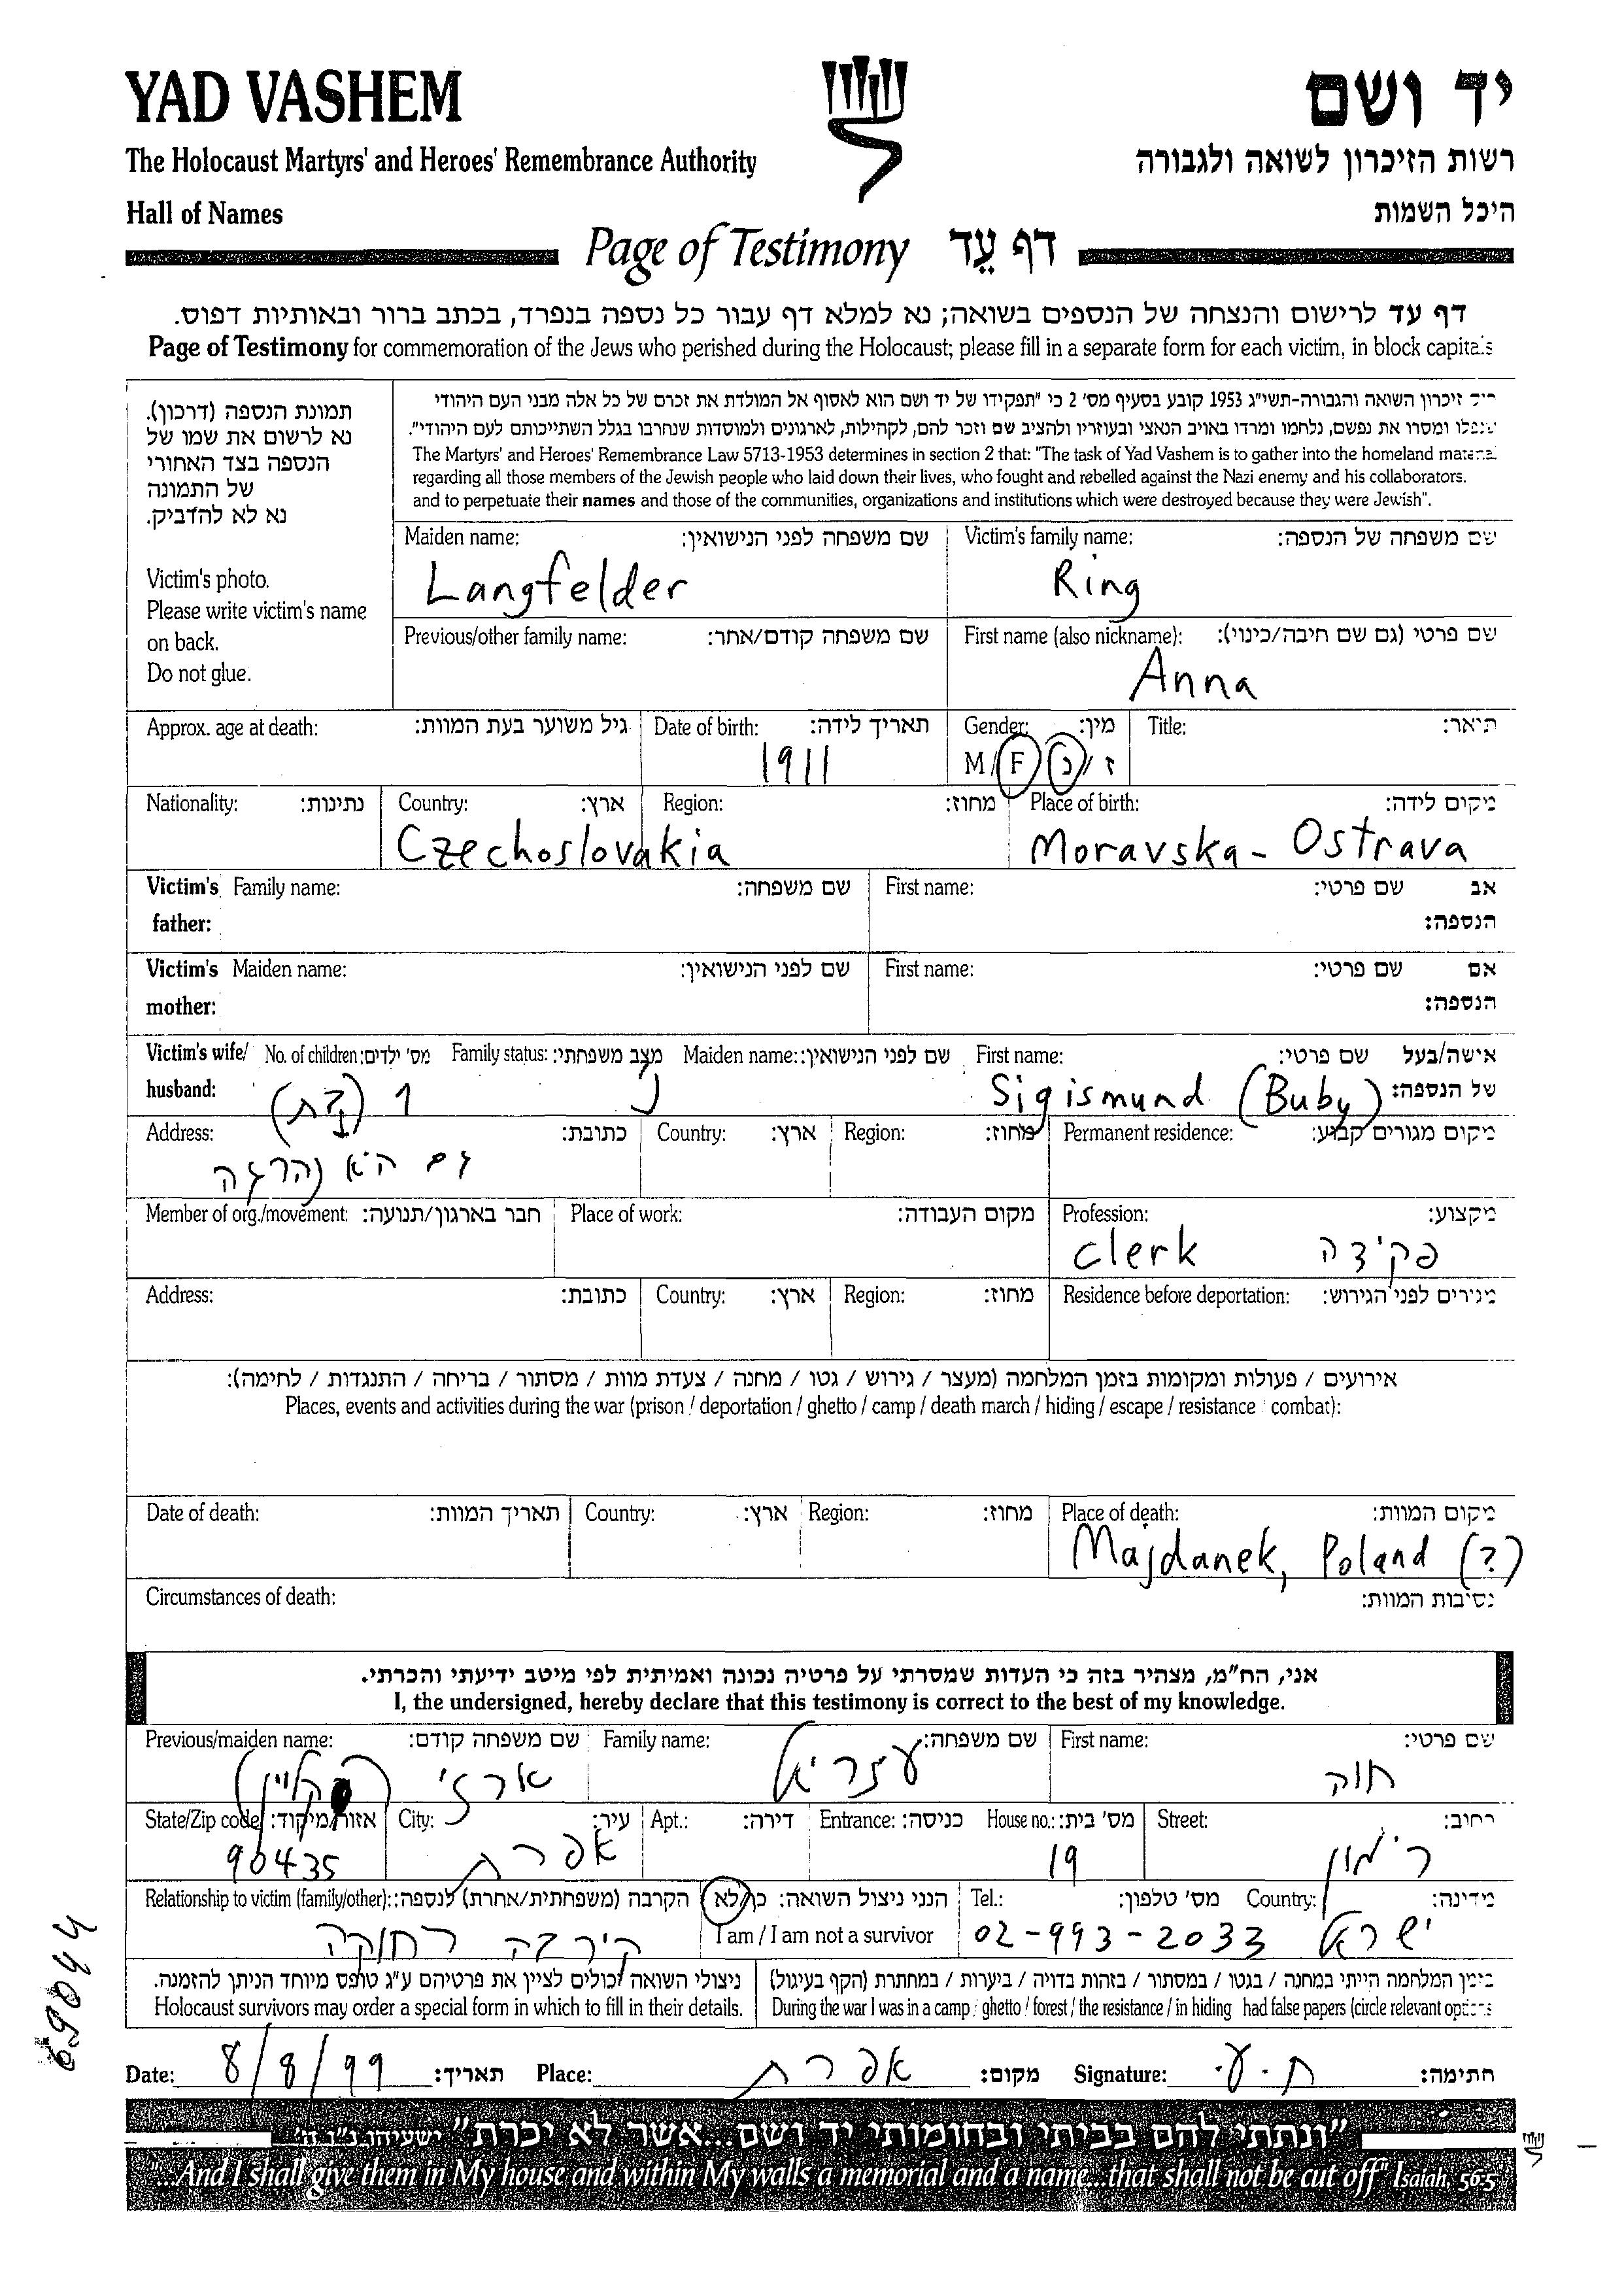 YAD VASHEM
יד ושם
The Holocaust Martyrs' and Heroes' Remembrance Authority
רשות הזיכרון לשואה ולגבורה
Hall of Names
היכל השמות
Page of Testimony דף עֵד
דף עד לרישום והנצחה של הנספים בשואה; נא למלא דף עבור כל נספה בנפרד, בכתב ברור ובאותיות דפוס.
Page of Testimony for commemoration of the Jews who perished during the Holocaust; please fill in a separate form for each victim, in block capitals
תמונת הנספה (דרכון).
נא לרשום את שמו של
הנספה בצד האחורי
של התמונה
נא לא להדביק.
Victim's photo.
Please write victim's name
on back.
Do not glue.
זיכרון השואה והגבורה-תשי"ג 1953 קובע בסעיף מס' 2 כי "תפקידו של יד ושם הוא לאסוף אל המולדת את זכרם של כל אלה מבני העם היהודי
שנפלו ומסרו את נפשם, נלחמו ומרדו באויב הנאצי ובעוזריו ולהציב שם וזכר להם, לקהילות, לארגונים ולמוסדות שנחרבו בגלל השתייכותם לעם היהודי".
The Martyrs' and Heroes' Remembrance Law 5713-1953 determines in section 2 that: "The task of Yad Vashem is to gather into the homeland material
regarding all those members of the Jewish people who laid down their lives, who fought and rebelled against the Nazi enemy and his collaborators.
and to perpetuate their names and those of the communities, organizations and institutions which were destroyed because they were Jewish".
Maiden name: שם משפחה לפני הנישואין: Victim's family name: שם משפחה של הנספה:
Langfelder Ring
Previous/other family name: שם משפחה קודם/אחר: First name (also nickname): שם פרטי (גם שם חיבה/כינוי):
Anna
Approx. age at death: גיל משוער בעת המוות: Date of birth: תאריך לידה: Gender: מין: Title: תיאר:
1911 M/F נ/ז
Nationality: נתינות: Country: ארץ: Region: מחוז: Place of birth: מקום לידה:
Czechoslovakia Moravska - Ostrava
Victim's Family name: שם משפחה: First name: שם פרטי: אב
father: הנספה:
Victim's Maiden name: שם לפני הנישואין: First name: שם פרטי: אם
mother: הנספה:
Victim's wife/ No. of children: מס' ילדים: Family status: מצב משפחתי: Maiden name: שם לפני הנישואין: First name: שם פרטי: אישה/בעל
husband: 1 (בת) נ Sigismund (Buby) של הנספה:
Address: כתובת: Country: ארץ: Region: מחוז: Permanent residence: מקום מגורים קבוע:
גם היא נהרגה
Member of org./movement: חבר בארגון/תנועה: Place of work: מקום העבודה: Profession: מקצוע:
clerk פקידה
Address: כתובת: Country: ארץ: Region: מחוז: Residence before deportation: מגורים לפני הגירוש:
אירועים / פעולות ומקומות בזמן המלחמה (מעצר / גירוש / גטו / מחנה / צעדת מוות / מסתור / בריחה / התנגדות / לחימה):
Places, events and activities during the war (prison / deportation / ghetto / camp / death march / hiding / escape / resistance / combat):
Date of death: תאריך המוות: Country: ארץ: Region: מחוז: Place of death: מקום המוות:
Majdanek, Poland (?)
Circumstances of death: נסיבות המוות:
אני, הח"מ, מצהיר בזה כי העדות שמסרתי על פרטיה נכונה ואמיתית לפי מיטב ידיעתי והכרתי.
I, the undersigned, hereby declare that this testimony is correct to the best of my knowledge.
Previous/maiden name: שם משפחה קודם: Family name: שם משפחה: First name: שם פרטי:
ארזי עזריאל חוה
State/Zip code: אזור/מיקוד: City: עיר: Apt.: דירה: Entrance: כניסה: House no.: מס' בית: Street: רחוב:
90435 אפרת 19 רימון
Relationship to victim (family/other): הקרבה (משפחתית/אחרת) לנספה: הנני ניצול השואה: כן/לא Tel.: מס' טלפון: Country: מדינה:
קירבה רחוקה I am / I am not a survivor 02-993-2033 ישראל
ניצולי השואה יכולים לציין את פרטיהם ע"ג טופס מיוחד הניתן להזמנה. בזמן המלחמה הייתי במחנה / בגטו / במסתור / בזהות בדויה / ביערות / במחתרת (הקף בעיגול)
Holocaust survivors may order a special form in which to fill in their details. During the war I was in a camp / ghetto / forest / the resistance / in hiding had false papers (circle relevant options
69044
Date: 8/8/99 תאריך: Place: אפרת מקום: Signature: ח.ע. חתימה:
"ונתתי להם בביתי ובחומותי יד ושם...אשר לא יכרת" ישעיהו נ"ו ה'
"...And I shall give them in My house and within My walls a memorial and a name...that shall not be cut off" Isaiah 56:5